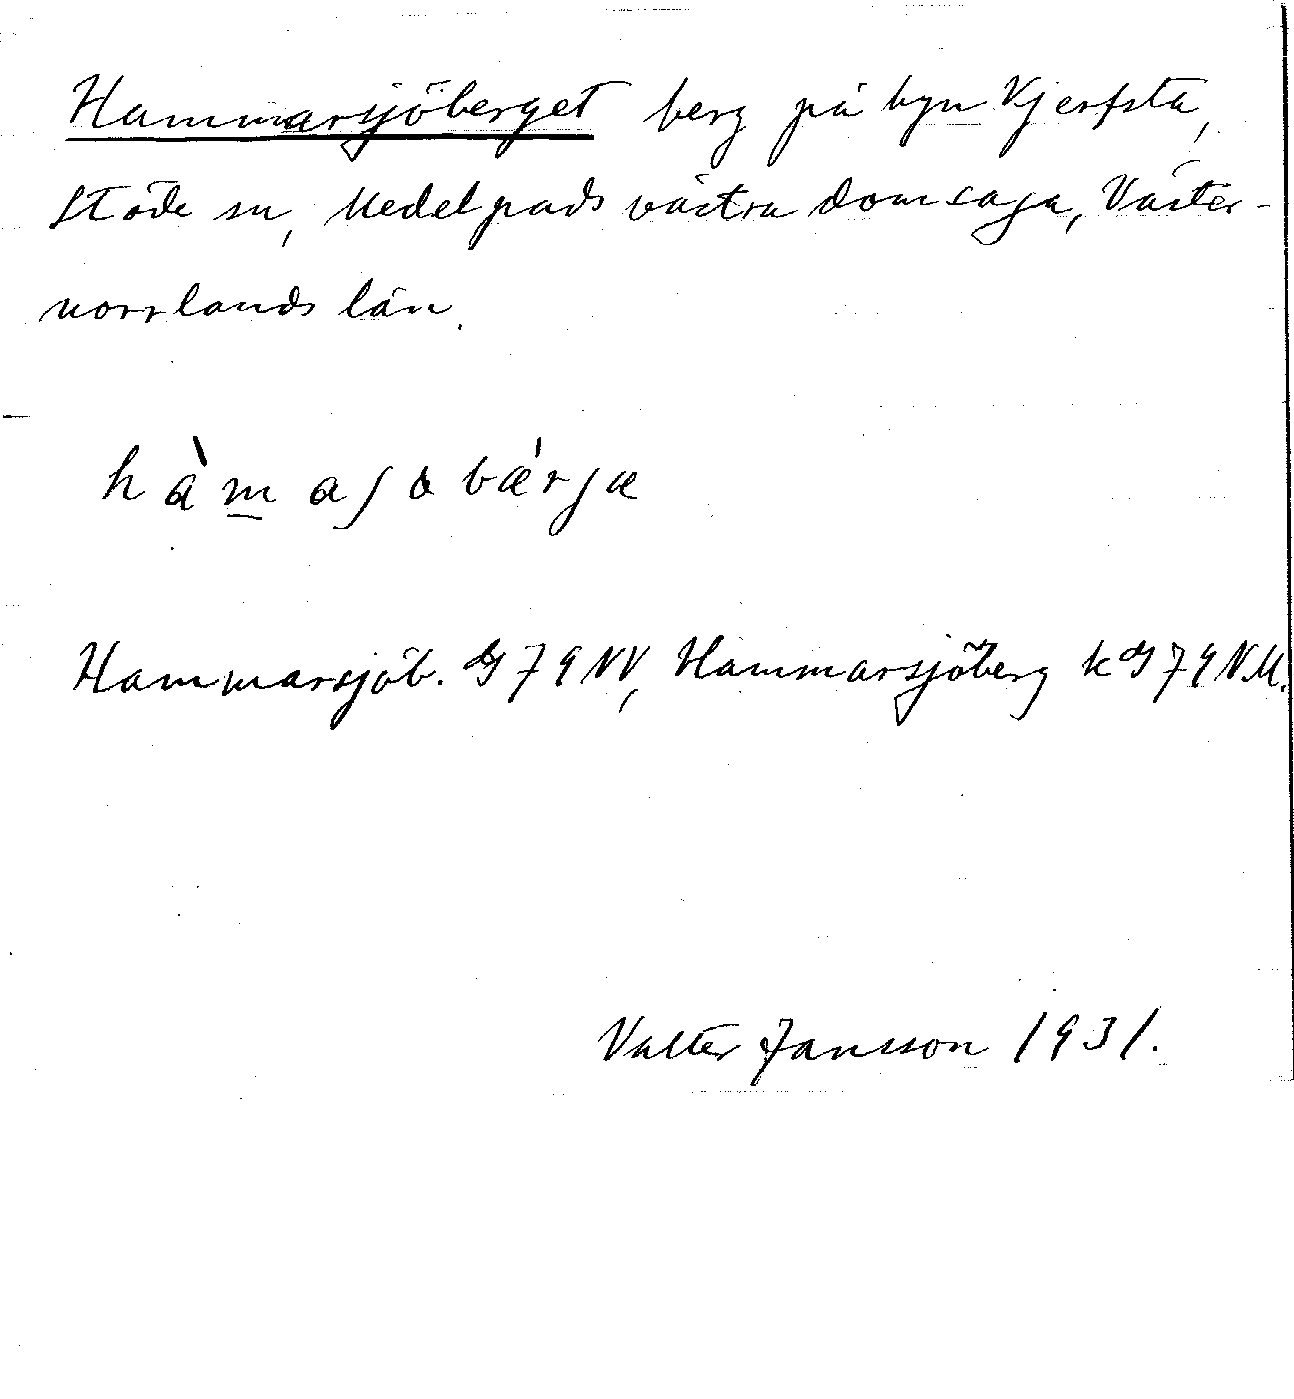 Hammarsjöberget berg på byn Kjerfsta,
Stöde sn, Medelpads västra domsaga, Väster-
norrlands län.
hàmaʃobǽrjæ
Hammarsjöb. G 79 NV, Hammarsjöberg k G 79 N.M.
Valter Jansson 1931.